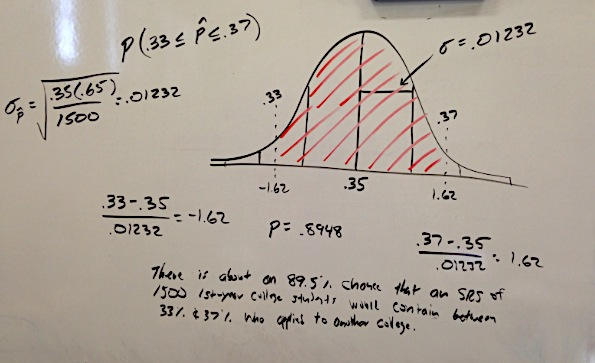 P(.33 ≤ p̂ ≤ .37)
σp̂ = √(.35(.65)/1500) = .01232
σ = .01232
.33
.37
-1.62
.35
1.62
.33-.35/.01232 = -1.62
P = .8948
.37-.35/.01232 = 1.62
There is about an 89.5% chance that an SRS of
1500 1st-year college students would contain between
33% & 37% who applied to another college.